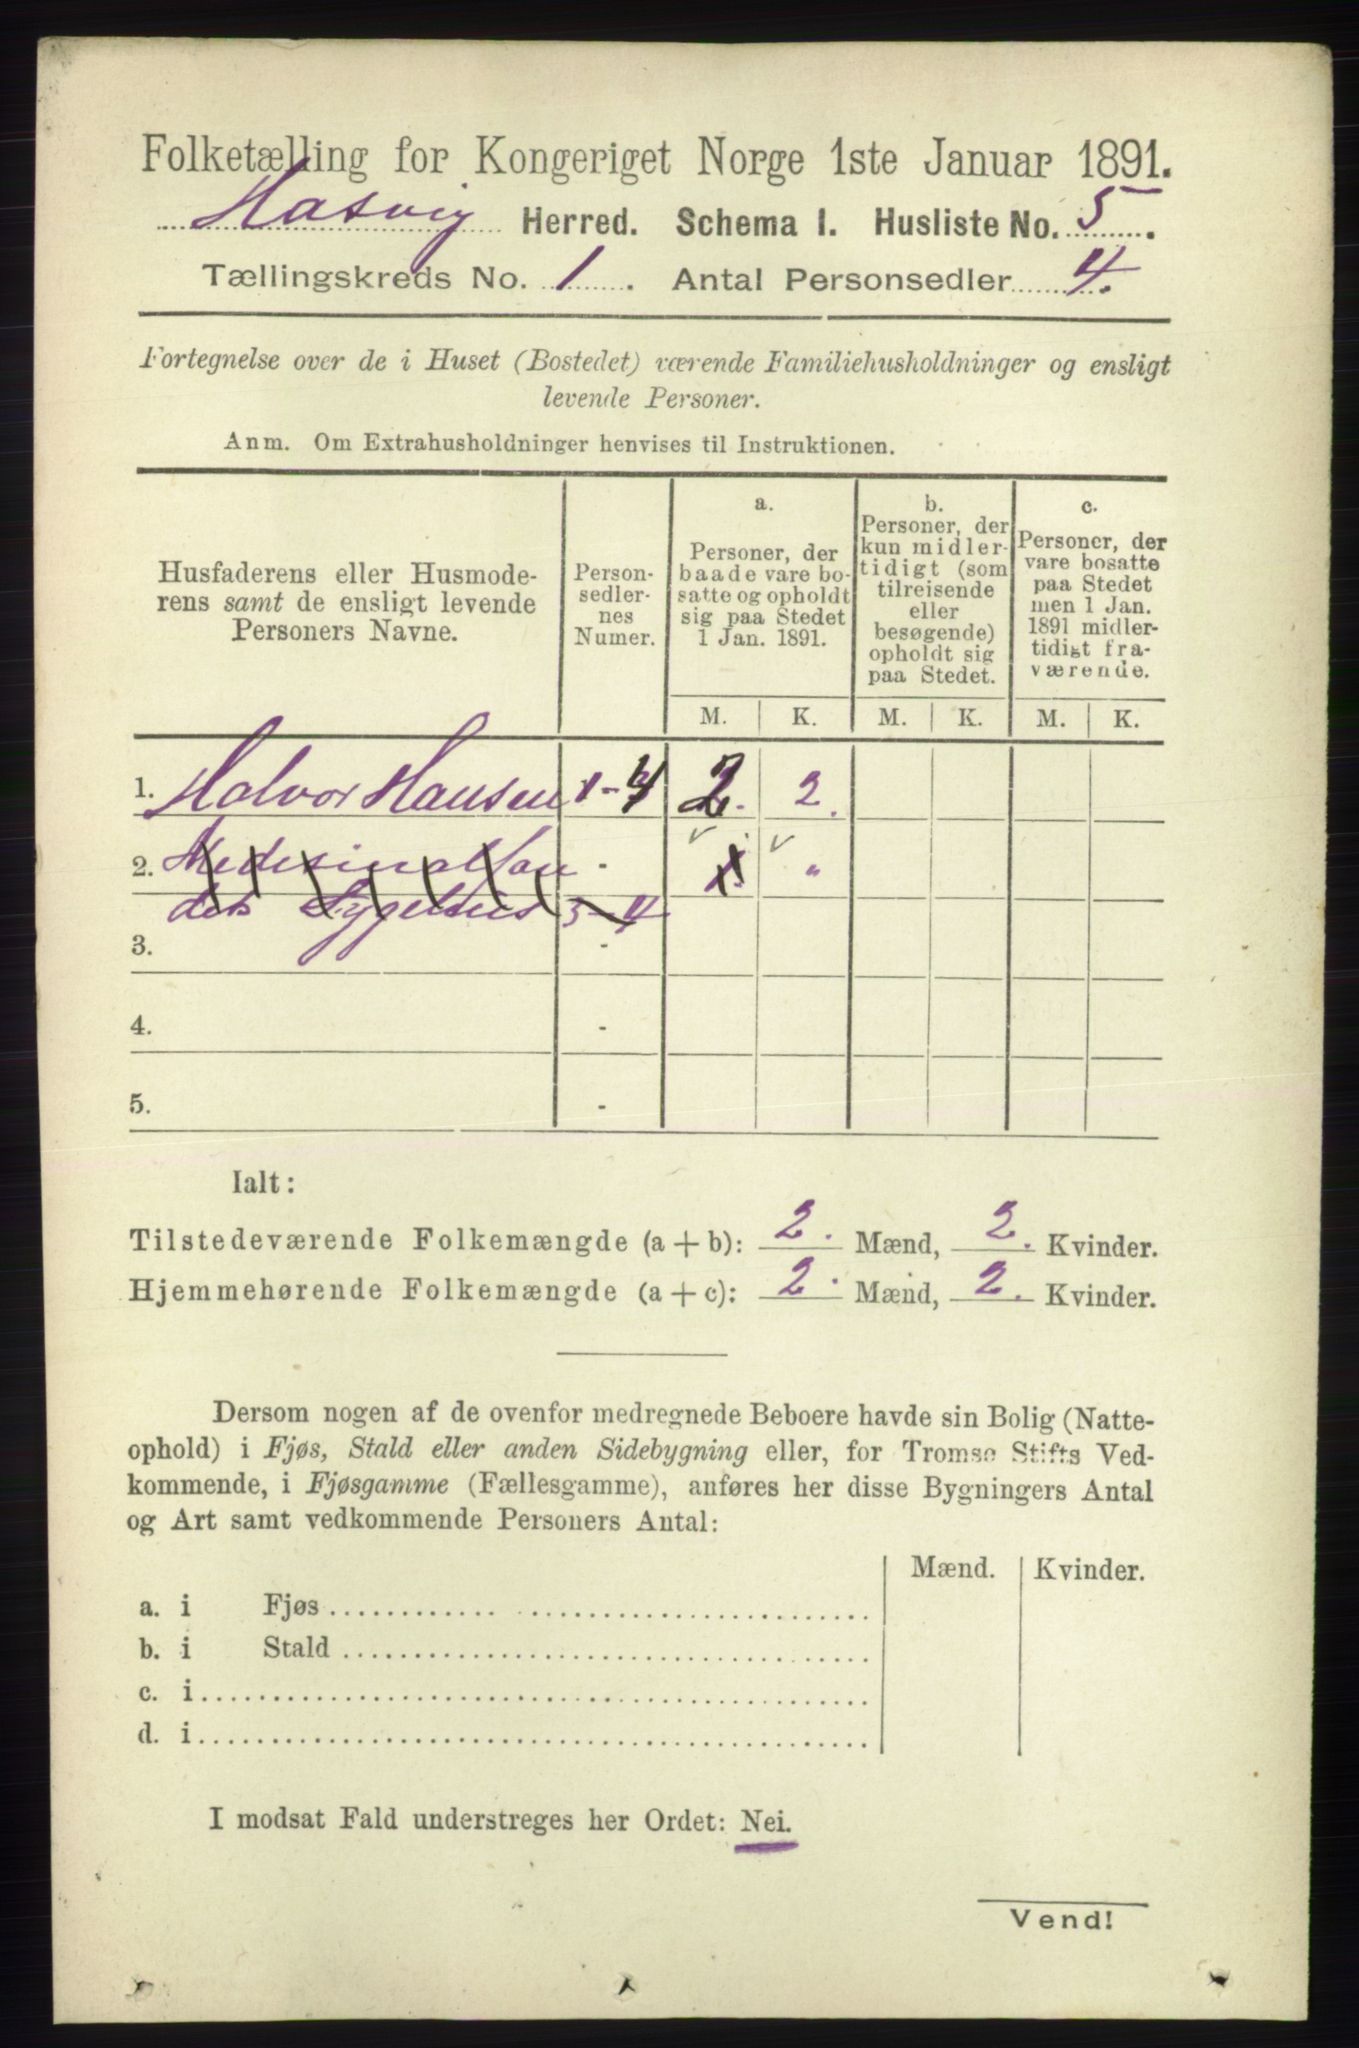 Folketælling for Kongeriget Norge 1ste Januar 1891.
Hasvig Herred. Schema I. Husliste No. 5.
Tællingskreds No. 1. Antal Personsedler 4.
Fortegnelse over de i Huset (Bostedet) værende Familiehusholdninger og ensligt
levende Personer.
Anm. Om Extrahusholdninger henvises til Instruktionen.
Husfaderens eller Husmode-
rens samt de ensligt levende
Personers Navne.
Person-
sedler-
nes
Numer.
a.
Personer, der
baade vare bo-
satte og opholdt
sig paa Stedet
1 Jan. 1891.
b.
Personer, der
kun midler-
tidigt (som
tilreisende
eller
besøgende)
opholdt sig
paa Stedet.
c.
Personer, der
vare bosatte
paa Stedet
men 1 Jan.
1891 midler-
tidigt fra-
værende.
M. K. M. K. M. K.
1. Halvor Hansen 1-4 2. 2.
2. Medisinalfon -
dets Sygehus 3-4
3. -
4. -
5. -
Ialt:
Tilstedeværende Folkemængde (a + b): 2. Mænd, 2. Kvinder.
Hjemmehørende Folkemængde (a + c): 2. Mænd, 2. Kvinder.
Dersom nogen af de ovenfor medregnede Beboere havde sin Bolig (Natte-
ophold) i Fjøs, Stald eller anden Sidebygning eller, for Tromsø Stifts Ved-
kommende, i Fjøsgamme (Fællesgamme), anføres her disse Bygningers Antal
og Art samt vedkommende Personers Antal:
Mænd. Kvinder.
a. i Fjøs
b. i Stald
c. i
d. i
I modsat Fald understreges her Ordet: Nei.
Vend!